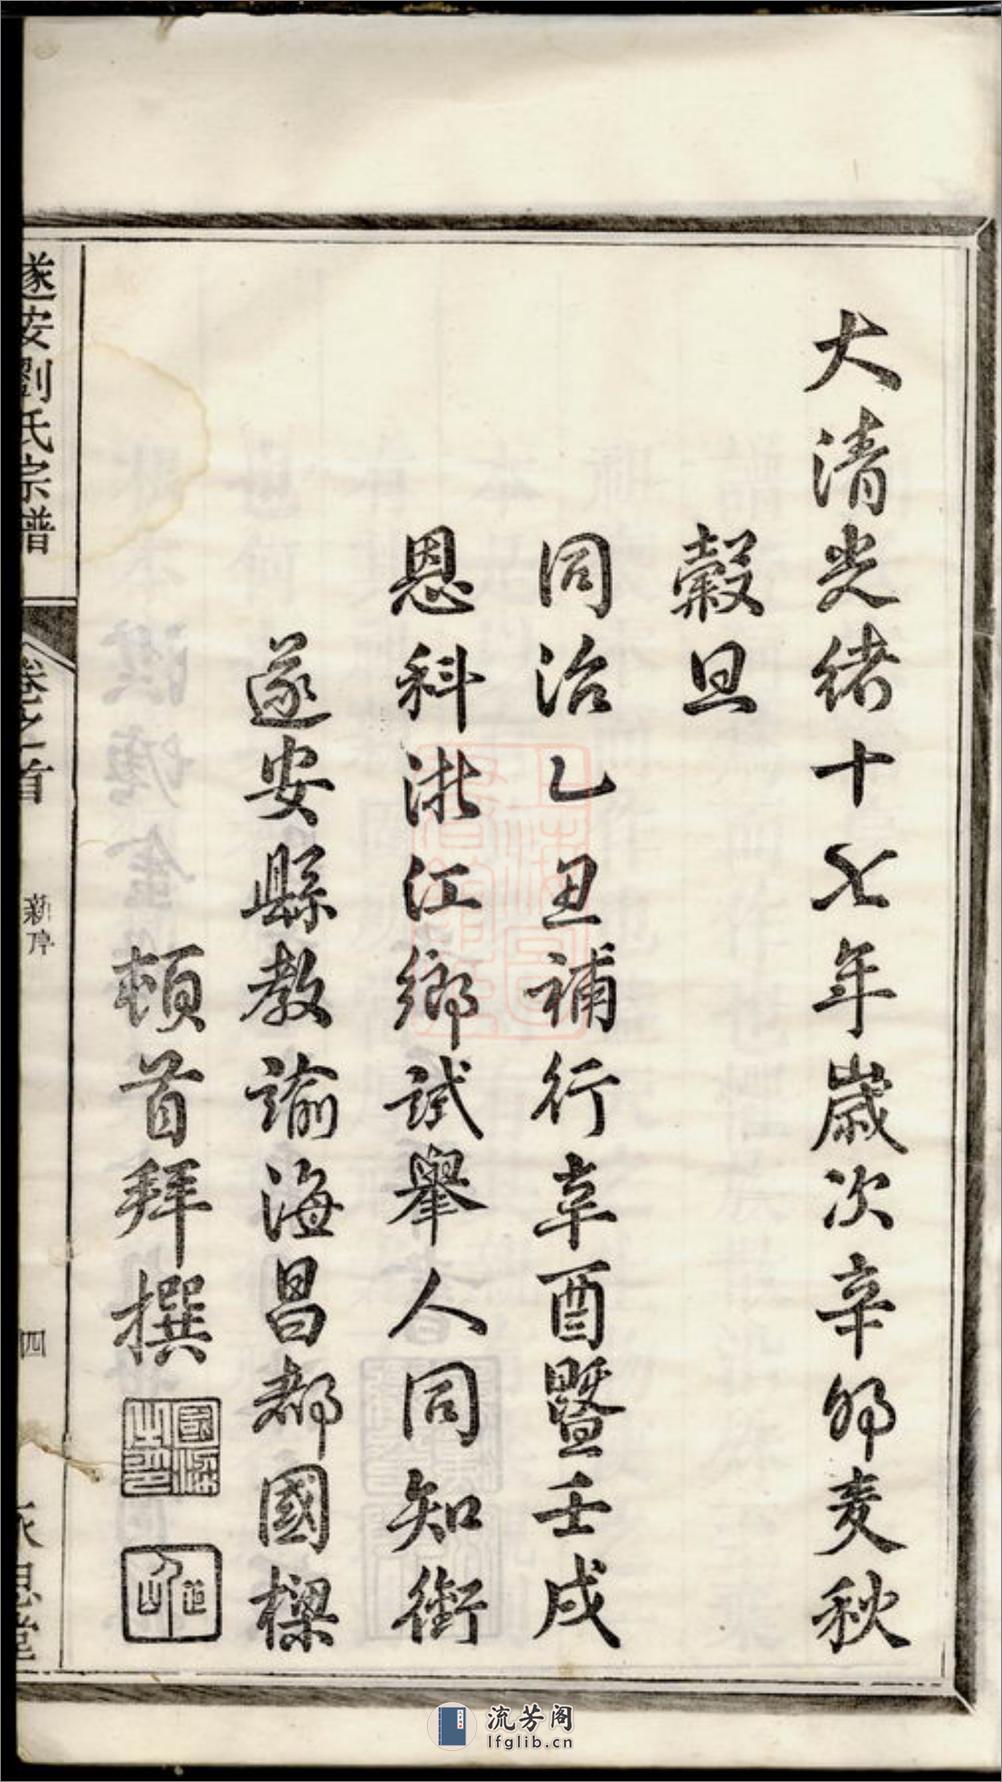 大清光緒十七年歲次辛卯麦秋
穀旦
同治乙丑補行辛酉暨壬戌
恩科浙江鄉試舉人同知銜
遂安縣教諭海昌都國樑
頓首拜撰
遂安劉氏宗譜
卷之首
新序
四
永思堂
流芳阁
lfglib.cn